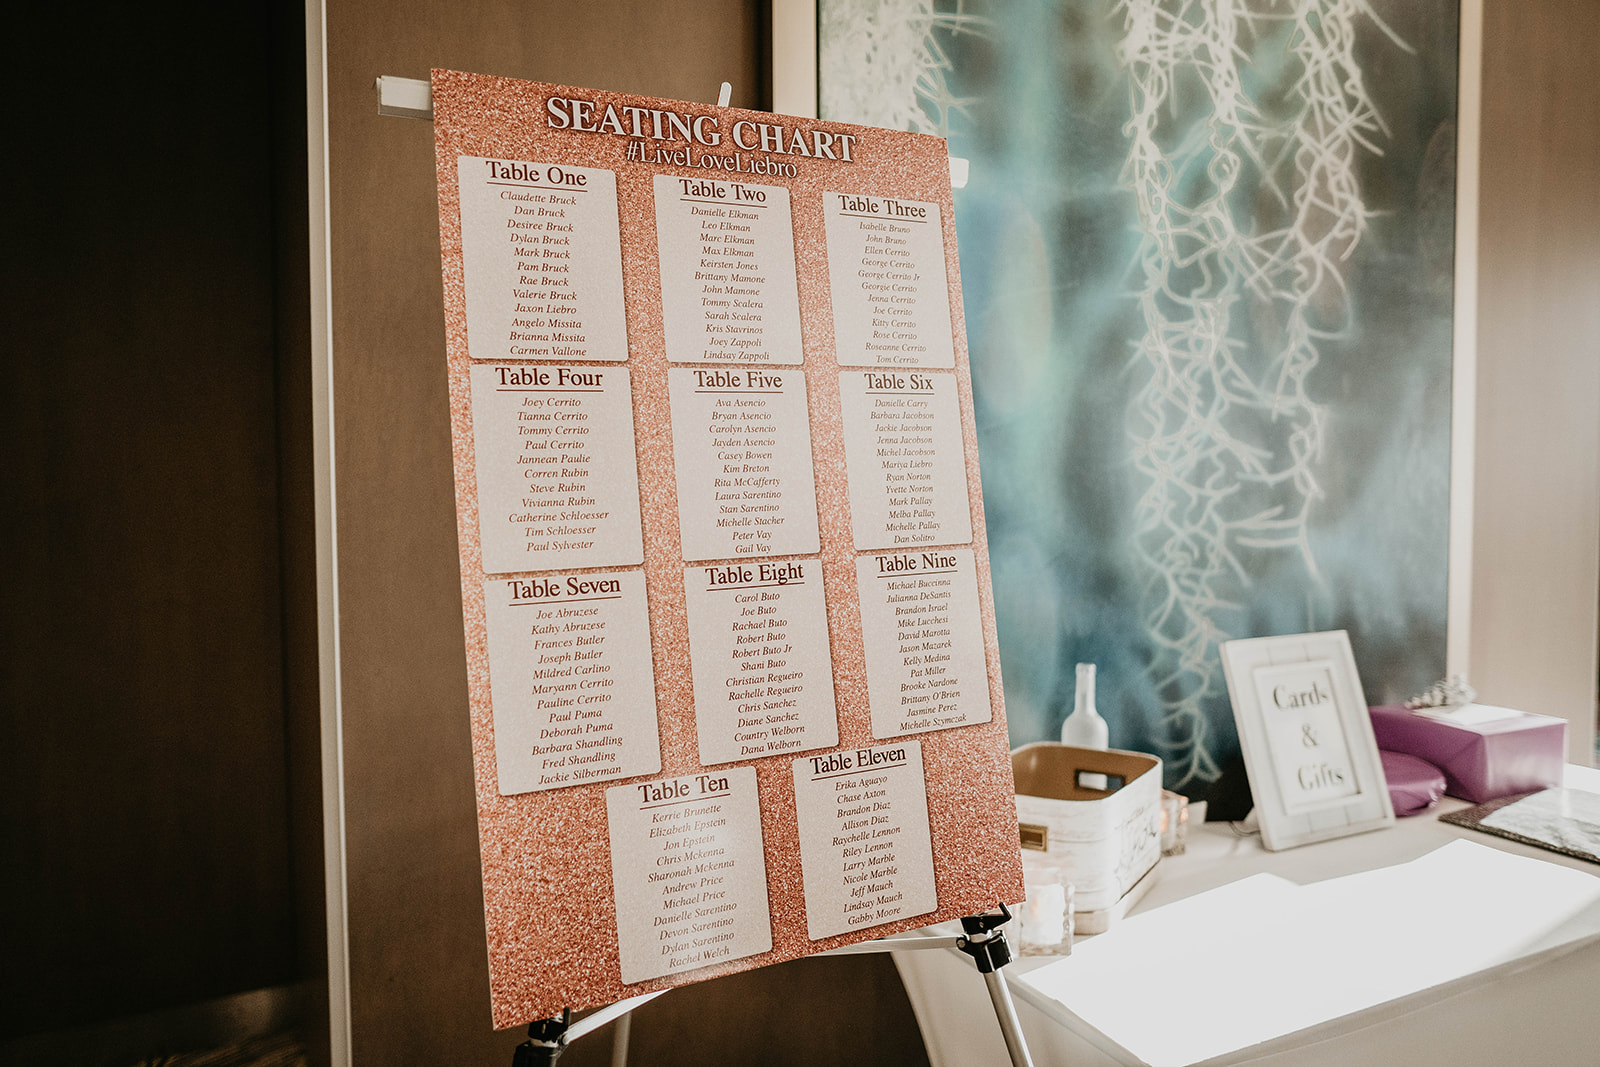 SEATING CHART
#LiveLoveLiebro
Table One
Claudette Bruck
Dan Bruck
Desiree Bruck
Dylan Bruck
Mark Bruck
Pam Bruck
Rae Bruck
Valerie Bruck
Jaxon Liebro
Angelo Missita
Brianna Missita
Carmen Vallone
Table Two
Danielle Elkman
Leo Elkman
Marc Elkman
Max Elkman
Keirsten Jones
Brittany Mamone
John Mamone
Tommy Scalera
Sarah Scalera
Kris Stavrinos
Joey Zappoli
Lindsay Zappoli
Table Three
Isabelle Bruno
John Bruno
Ellen Cerrito
George Cerrito
George Cerrito Jr
Georgie Cerrito
Jenna Cerrito
Joe Cerrito
Kitty Cerrito
Rose Cerrito
Roseanne Cerrito
Tom Cerrito
Table Four
Joey Cerrito
Tianna Cerrito
Tommy Cerrito
Paul Cerrito
Jannean Paulie
Corren Rubin
Steve Rubin
Vivianna Rubin
Catherine Schloesser
Tim Schloesser
Paul Sylvester
Table Five
Ava Asencio
Bryan Asencio
Carolyn Asencio
Jayden Asencio
Casey Bowen
Kim Breton
Rita McCafferty
Laura Sarentino
Stan Sarentino
Michelle Stacher
Peter Vay
Gail Vay
Table Six
Danielle Carry
Barbara Jacobson
Jackie Jacobson
Jenna Jacobson
Michel Jacobson
Mariya Liebro
Ryan Norton
Yvette Norton
Mark Pallay
Melba Pallay
Michelle Pallay
Dan Solitro
Table Seven
Joe Abruzese
Kathy Abruzese
Frances Butler
Joseph Butler
Mildred Carlino
Maryann Cerrito
Pauline Cerrito
Paul Puma
Deborah Puma
Barbara Shandling
Fred Shandling
Jackie Silberman
Table Eight
Carol Buto
Joe Buto
Rachael Buto
Robert Buto
Robert Buto Jr
Shani Buto
Christian Regueiro
Rachelle Regueiro
Chris Sanchez
Diane Sanchez
Country Welborn
Dana Welborn
Table Nine
Michael Buccinna
Julianna DeSantis
Brandon Israel
Mike Lucchesi
David Marotta
Jason Mazarek
Kelly Medina
Pat Miller
Brooke Nardone
Brittany O'Brien
Jasmine Perez
Michelle Szymczak
Table Ten
Kerrie Brunette
Elizabeth Epstein
Jon Epstein
Chris Mckenna
Sharonah Mckenna
Andrew Price
Michael Price
Danielle Sarentino
Devon Sarentino
Dylan Sarentino
Rachel Welch
Table Eleven
Erika Aguayo
Chase Axton
Brandon Diaz
Allison Diaz
Raychelle Lennon
Riley Lennon
Larry Marble
Nicole Marble
Jeff Mauch
Lindsay Mauch
Gabby Moore
Cards
&
Gifts